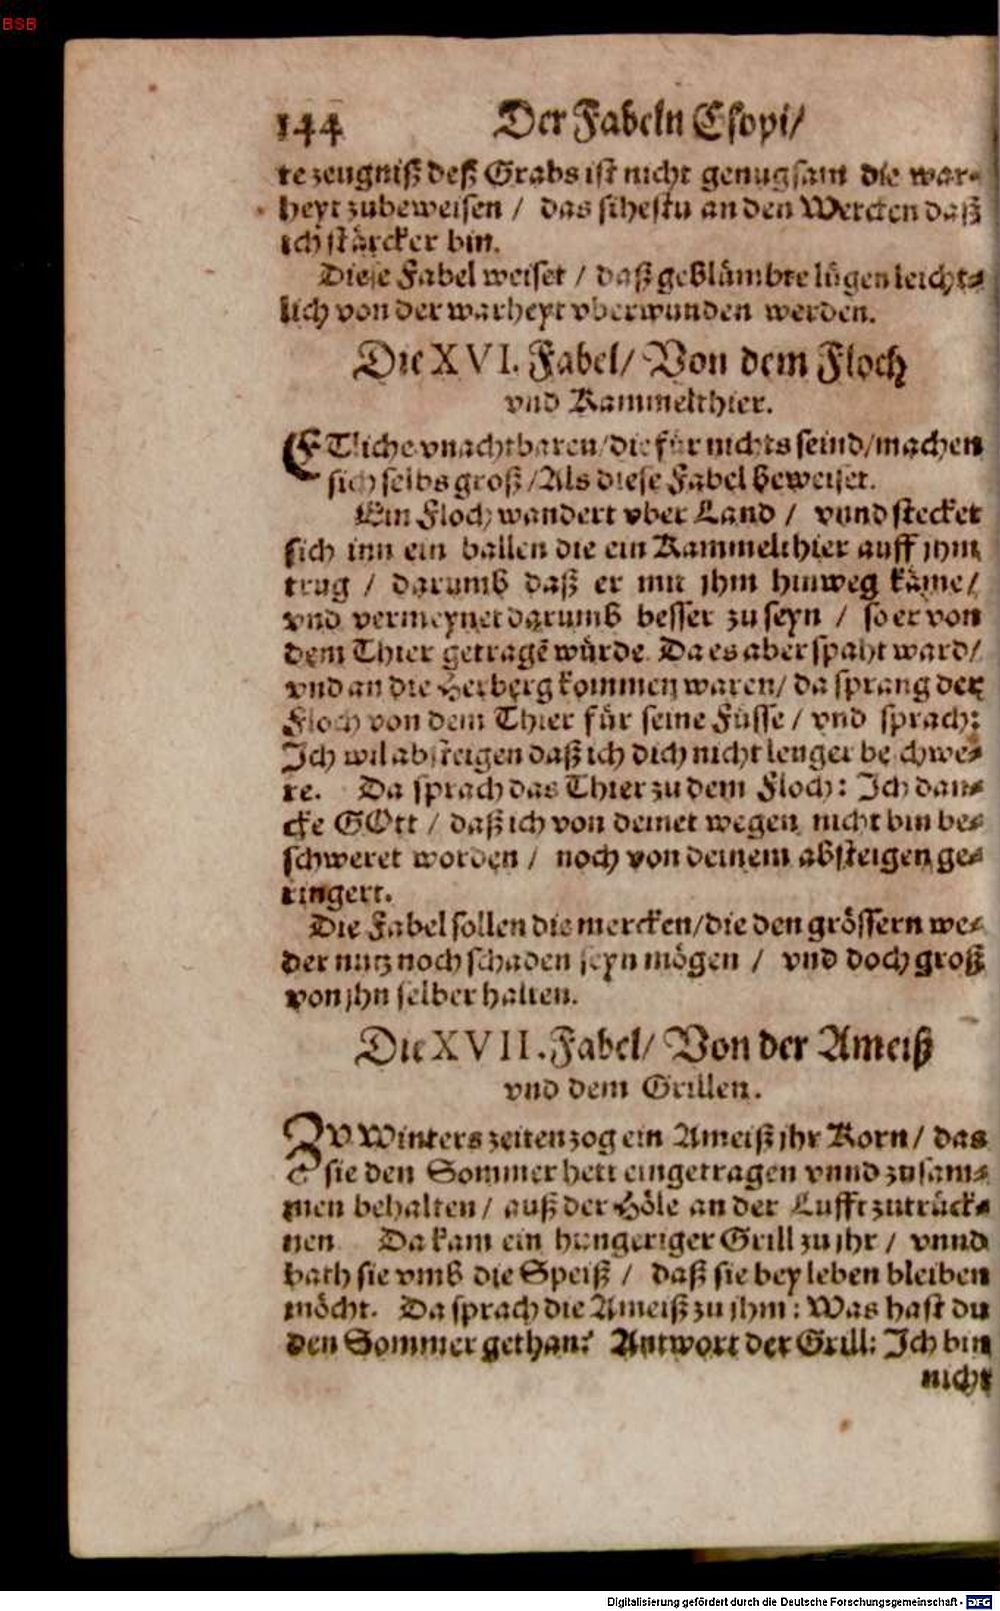 BSB
144 Der Fabeln Esopi/
te zeugniß deß Grabs ist nicht genugsam die war-
heyt zubeweisen / das sihestu an den Wercken daß
ich stärcker bin.
Diese Fabel weiset / daß geblümbte lügen leicht-
lich von der warheyt vberwunden werden.
Die XVI. Fabel/ Von dem Floch
vnd Kammelthier.
ETliche vnachtbaren/die für nichts seind/machen
sich selbs groß/Als diese Fabel beweiset.
Ein Floch wandert vber Land / vnnd stecket
sich inn ein ballen die ein Kammelthier auff jhm
trug / darumb daß er mit jhm hinweg käme/
vnd vermeynet darumb besser zu seyn / so er von
dem Thier getragẽ würde. Da es aber spaht ward/
vnd an die Herberg kommen waren/ da sprang der
Floch von dem Thier für seine Füsse / vnd sprach:
Ich wil absteigen daß ich dich nicht lenger beschwe-
re. Da sprach das Thier zu dem Floch: Ich dan-
cke GOtt / daß ich von deinet wegen nicht bin be-
schweret worden / noch von deinem absteigen ge-
ringert.
Die Fabel sollen die mercken/die den grössern we-
der nutz noch schaden seyn mögen / vnd doch groß
von jhn selber halten.
Die XVII. Fabel/ Von der Ameiß
vnd dem Grillen.
ZV Winters zeiten zog ein Ameiß jhr Korn/ das
sie den Sommer hett eingetragen vnnd zusam-
men behalten/ auß der Höle an der Lufft zutrück-
nen Da kam ein hungeriger Grill zu jhr / vnnd
bath sie vmb die Speiß / daß sie bey leben bleiben
möcht. Da sprach die Ameiß zu jhm: Was hast du
den Sommer gethan? Antwort der Grill: Ich bin
nicht
Digitalisierung gefördert durch die Deutsche Forschungsgemeinschaft - DFG